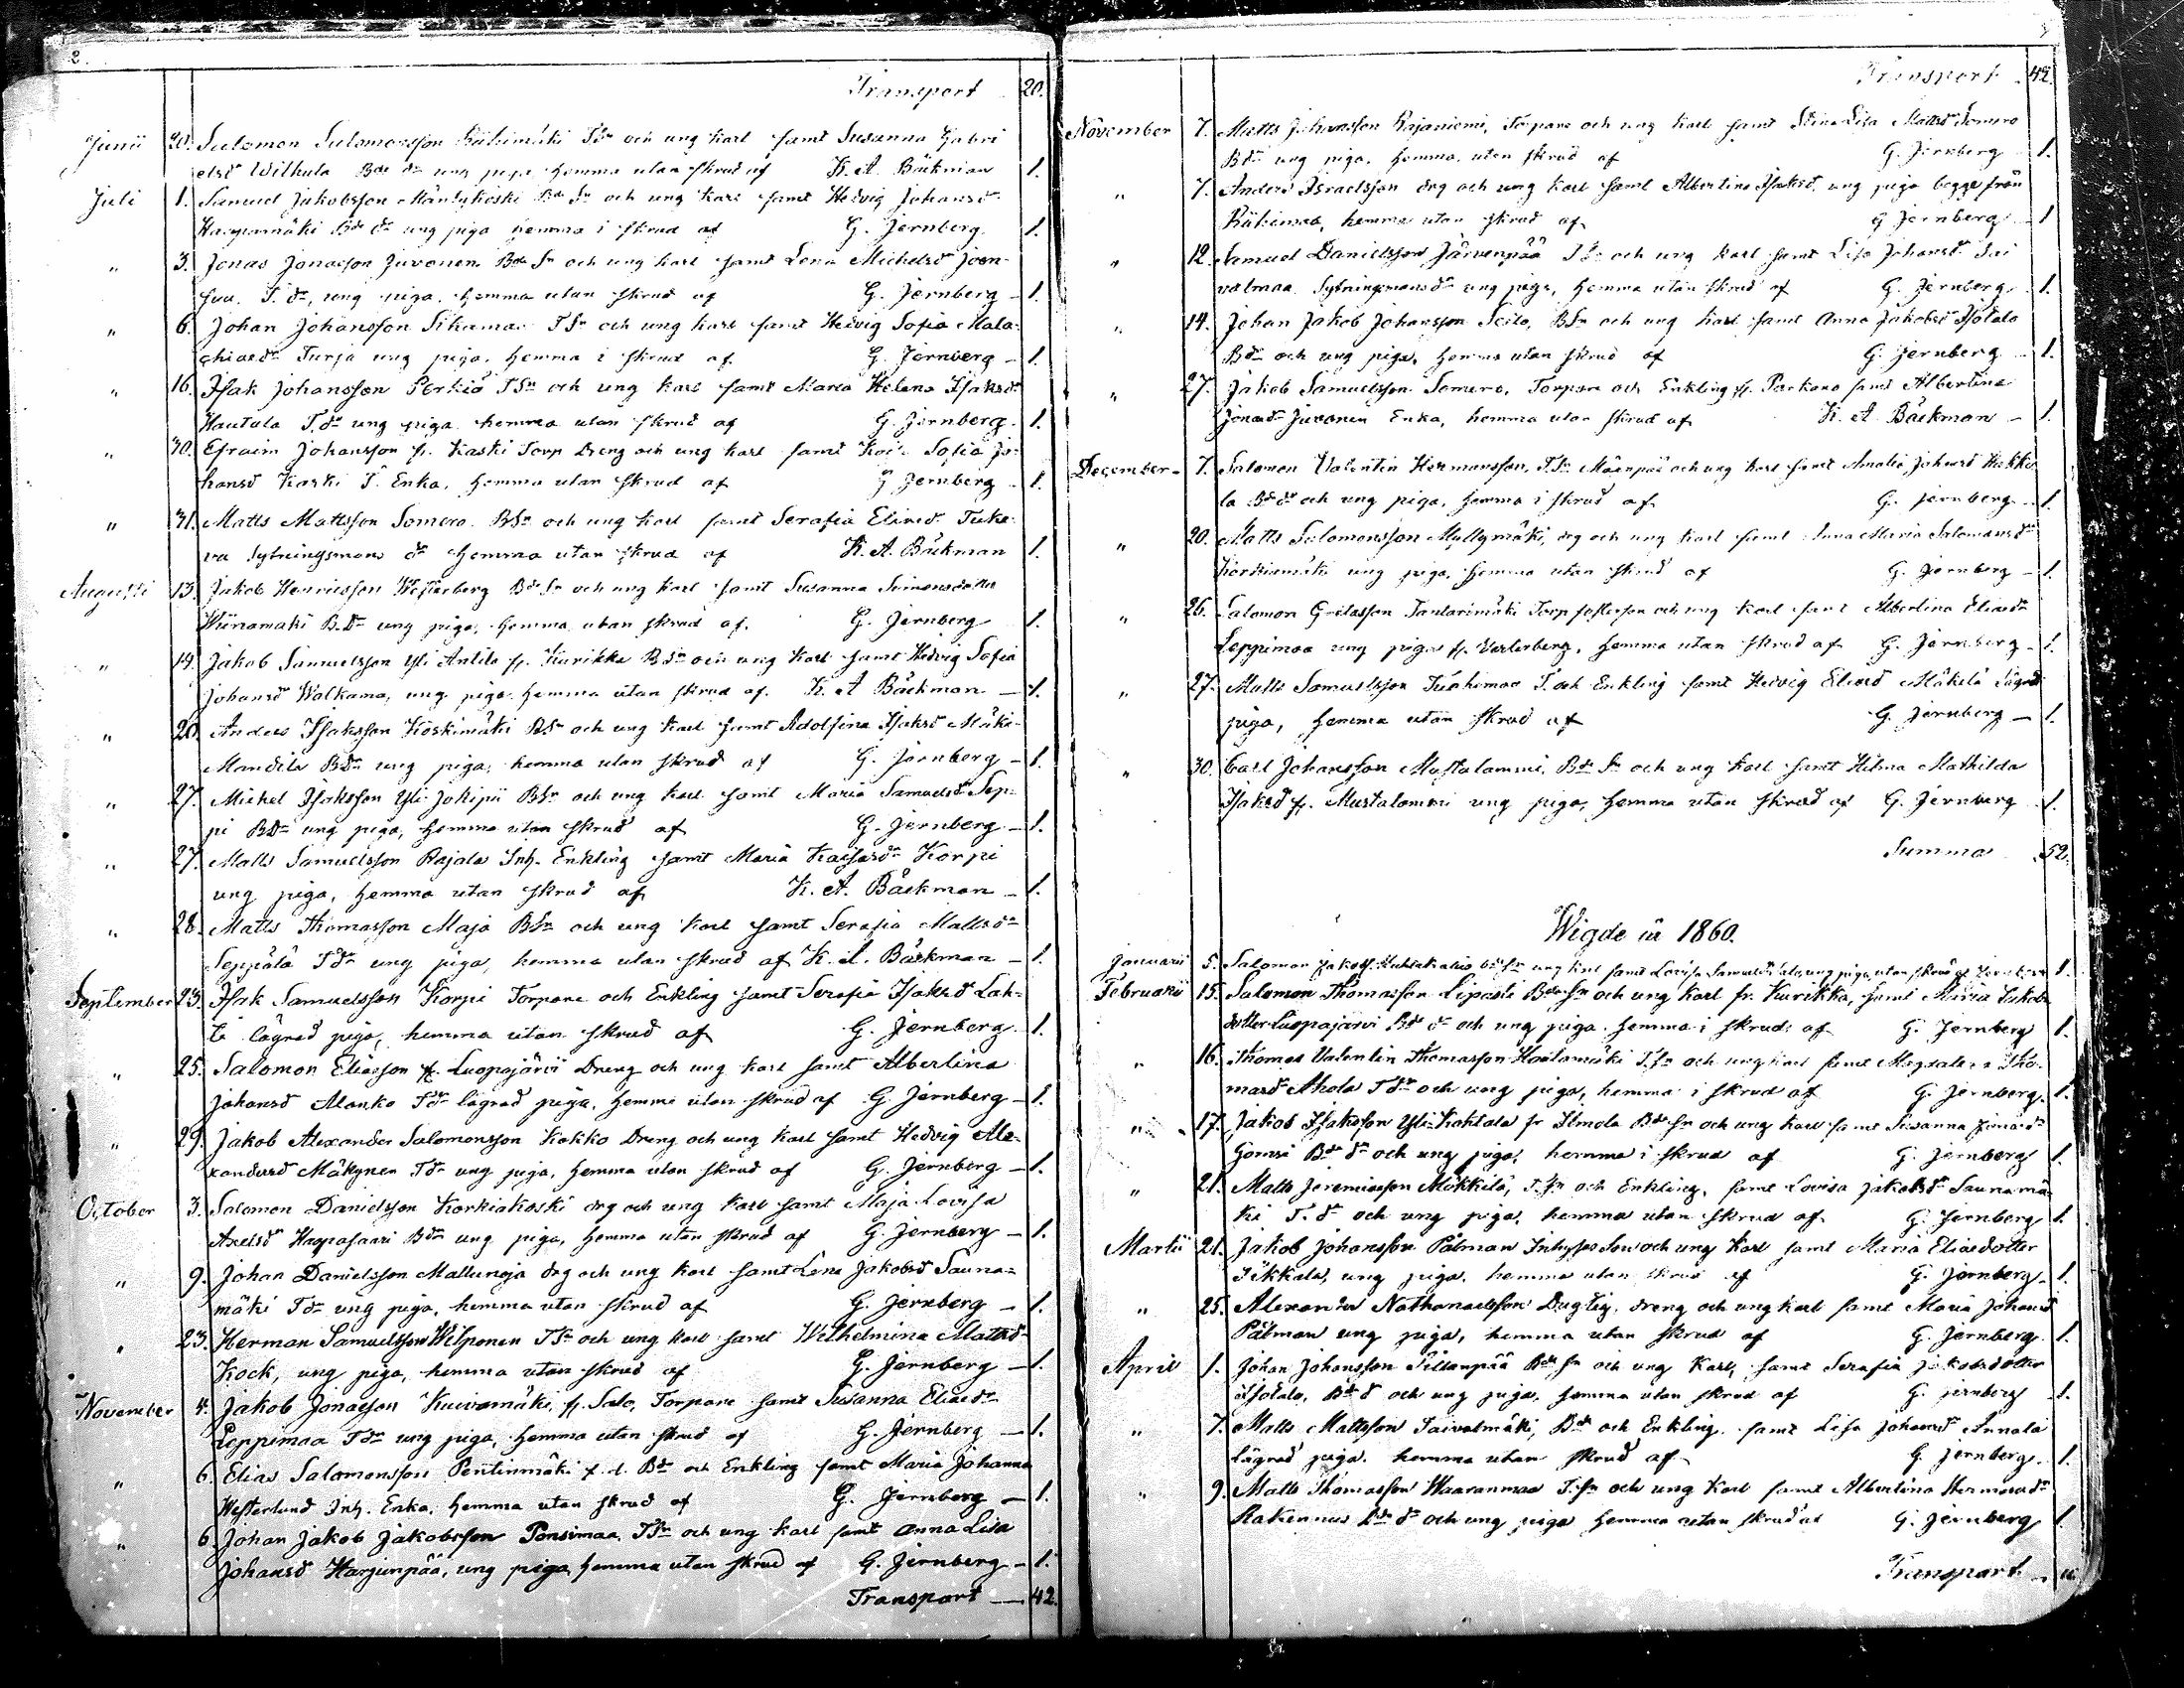 2.
Transport 20.
Junii 20. Salomon Salomonsson TSn och ung karl samt Susanna Gabri
elsd Wilkula Bde dr ung piga hemma utan skrud af K. A. Bäckman 1.
Juli 1. Samuel Jakobsson Mäntykoski Bde Sn och ung karl samt Hedvig Johansdr
Bde dr ung piga hemma i skrud af G. Jernberg 1.
" 3. Jonas Jonasson Juvonen Bde Sn och ung karl samt Lena Michelsd Joen-
suu T. dr, ung piga. hemma utan skrud af G. Jernberg – 1.
" 6. Johan Johansson TSn och ung karl samt Hedvig Sofia Mala-
chiasdr Turja ung piga. hemma i skrud af G. Jernberg – 1.
" 16. Isak Johansson Perkiö TSn och ung karl samt Maria Helena Isaksdr
Hautala T.dr ung piga hemma utan skrud af G. Jernberg 1.
" 30. Efraim Johansson fr. Kaski Torp Dreng och ung karl samt Sofia Jo-
hansd Kaski T. Enka, hemma utan skrud af G Jernberg 1.
" 31. Matts Mattsson Somero BSn och ung karl samt Serafia Eliasd. Tuke-
va Sytningsmans dr hemma utan skrud af K. A. Bäckman 1.
Augusti 13. Jakob Henricsson Westerberg Bde Sn och ung karl samt Susanna Simonsdotter
Wiinamäki B.dr ung piga, hemma utan skrud af. G. Jernberg 1.
" 14. Jakob Samuelsson Yli Antila fr. Kurikka BSn och ung karl samt Hedvig Sofia
Johansd Walkama, ung piga hemma utan skrud af. K. A Bäckman – 1.
" 26. Anders Isaksson Koskimäki BSn och ung karl samt Adolfina Isaksd Mäki-
Mandila Bdr ung piga, hemma utan skrud af G. Jernberg – 1.
" 27. Michel Isaksson Yli-Jokipii BSn och ung karl samt Maria Samuelsd Sep-
pi Bdr ung piga, hemma utan skrud af G. Jernberg – 1.
" 27. Matts Samuelsson Rajala Inh. Enkling samt Maria Kaisasdr Korpi
ung piga, hemma utan skrud af K. A. Bäckman – 1.
" 28. Matts Thomasson Maja BSn och ung karl samt Serafia Mattsdr
Seppälä Tdr ung piga, hemma utan skrud af K. A. Bäckman – 1.
September 23. Isak Samuelsson Korpi Torpare och Enkling samt Serafia Isaksd Lah-
ti lägrad piga, hemma utan skrud af G. Jernberg. 1.
" 25. Salomon Eliasson fr. Luopajärvi Dreng och ung karl samt Albertina
Johansd Alanko Tdr lägrad piga, hemma utan skrud af G. Jernberg – 1.
" 29. Jakob Alexander Salomonsson Kokko Dreng och ung karl samt Hedvig Ale-
xandersd Mäkynen Tdr ung piga, hemma utan skrud af G. Jernberg – 1.
October 3. Salomon Danielsson Korkiakoski drg och ung karl samt Maja Lovisa
Axelsd Haapasaari Bdr ung piga, hemma utan skrud af G. Jernberg – 1.
" 9. Johan Danielsson Mallunoja drg och ung karl samt Lena Jakobsd Sauna-
mäki Tdr ung piga, hemma utan skrud af G. Jernberg – 1.
" 23. Herman Samuelsson Wilponen TSn och ung karl samt Wilhelmina Mattsd
Kock, ung piga, hemma utan skrud af G. Jernberg – 1.
November 4. Jakob Jonasson Kuivamäki fr. Salo, Torpare samt Susanna Eliasdr
Leppimaa Tdr ung piga, hemma utan skrud af G. Jernberg – 1.
" 6. Elias Salomonsson Pentinmäki f. d. Bde och Enkling samt Maria Johanna
Westerlund Inh. Enka, hemma utan skrud af G. Jernberg – 1.
" 6. Johan Jakob Jakobsson Ponsimaa TSn och ung karl samt Anna Lisa
Johansd Harjunpää, ung piga hemma utan skrud af G. Jernberg – 1.
Transport — 42.
Transport 42.
November 7. Matts Johansson Rajaniemi, Torpare och ung karl samt Stina Lisa Mattsd Somero
Bdr ung piga, hemma utan skrud af G. Jernberg 1.
" 7. Anders Israelsson drg och ung karl samt Albertina Isaksd, ung piga begge från
hemma utan skrud af G Jernberg 1
" 12. Samuel Danielsson Järvenpää TSn och ung karl samt Lisa Johansd Tai
valmaa Sytningsmansdr ung piga, hemma utan skrud af G. Jernberg 1.
" 14. Johan Jakob Johansson BSn och ung karl samt Anna Jakobsd Isotalo
Bdr och ung piga, hemma utan skrud af G. Jernberg 1.
" 27. Jakob Samuelsson Somero, Torpare och Enkling fr. Parkano samt Albertina
Jonasd Juvonen Enka, hemma utan skrud af K. A. Bäckman – 1.
December – 7. Salomon Valentin Hermansson, TSn Mäenpää och ung karl samt Amalia Johansd Heikki
la Bde dr och ung piga, hemma i skrud af G. Jernberg – 1.
" 20. Matts Salomonsson Myllymäki, drg och ung karl samt Anna Maria Salomonsdr
Korkiamäki ung piga, hemma utan skrud af G. Jernberg – 1.
" 26. Salomon Tantarimäki Torp och ung karl samt Albertina Eliasdr
Leppimaa ung piga fr. hemma utan skrud af G. Jernberg – 1.
" 27. Matts Samuelsson T. och Enkling samt Hedvig Eliasd Mäkelä lägrad
piga, hemma utan skrud af G. Jernberg – 1.
" 30. Carl Johansson Mustalammi, Bde Sn och ung karl samt Hilma Mathilda
Isaksd fr. Mustalammi ung piga, hemma utan skrud af G. Jernberg 1.
Summa 52.
Wigde år 1860.
Januarii 5. Salomon ung karl samt Lovisa ung piga, utan skrud af Jernberg 1.
Februarii 15. Salomon Thomasson Bde Sn och ung karl fr. Kurikka, samt Maria Jakobs
dotter Luopajärvi Bde dr och ung piga hemma i skrud af G. Jernberg 1.
" 16. Thomas Valentin Thomasson T.Sn och ung karl samt Magdalena Tho-
masdr Ahola Tdr och ung piga, hemma i skrud af G. Jernberg. 1.
" 17. Jakob Isaksson Yli-Kahtala fr Ilmola Bde Sn och ung karl samt Susanna
Bde dr och ung piga, hemma i skrud af G. Jernberg 1.
" 21. Matts Jeremiasson Mikkilä, T.Sn och Enkling, samt Lovisa Jakobsdr Saunamä
ki T. dr och ung piga, hemma utan skrud af G. Jernberg 1.
Martii 21. Jakob Johansson Pålman Inhyses Son och ung karl samt Maria Eliasdotter
ung piga, hemma utan skrud af G. Jernberg 1.
" 25. Alexander Nathanaelsson Dugtig, dreng och ung karl samt Maria Johansd
Pålman ung piga, hemma utan skrud af G. Jernberg 1.
April 1. Johan Johansson Sillanpää Bde Sn och ung karl, samt Serafia Jakobsdotter
Isotalo, Bde d och ung piga, hemma utan skrud af G. Jernberg 1.
" 7. Matts Mattsson Taivalmäki, Bde och Enkling samt Lisa Johansdr Annala
lägrad piga, hemma utan skrud af G. Jernberg. 1.
" 9. Matts Thomasson Waaranmaa T.Sn och ung karl samt Albertina Hermansdr
Rakennus Bde dr och ung piga hemma utan skrud af G. Jernberg 1.
Transport –